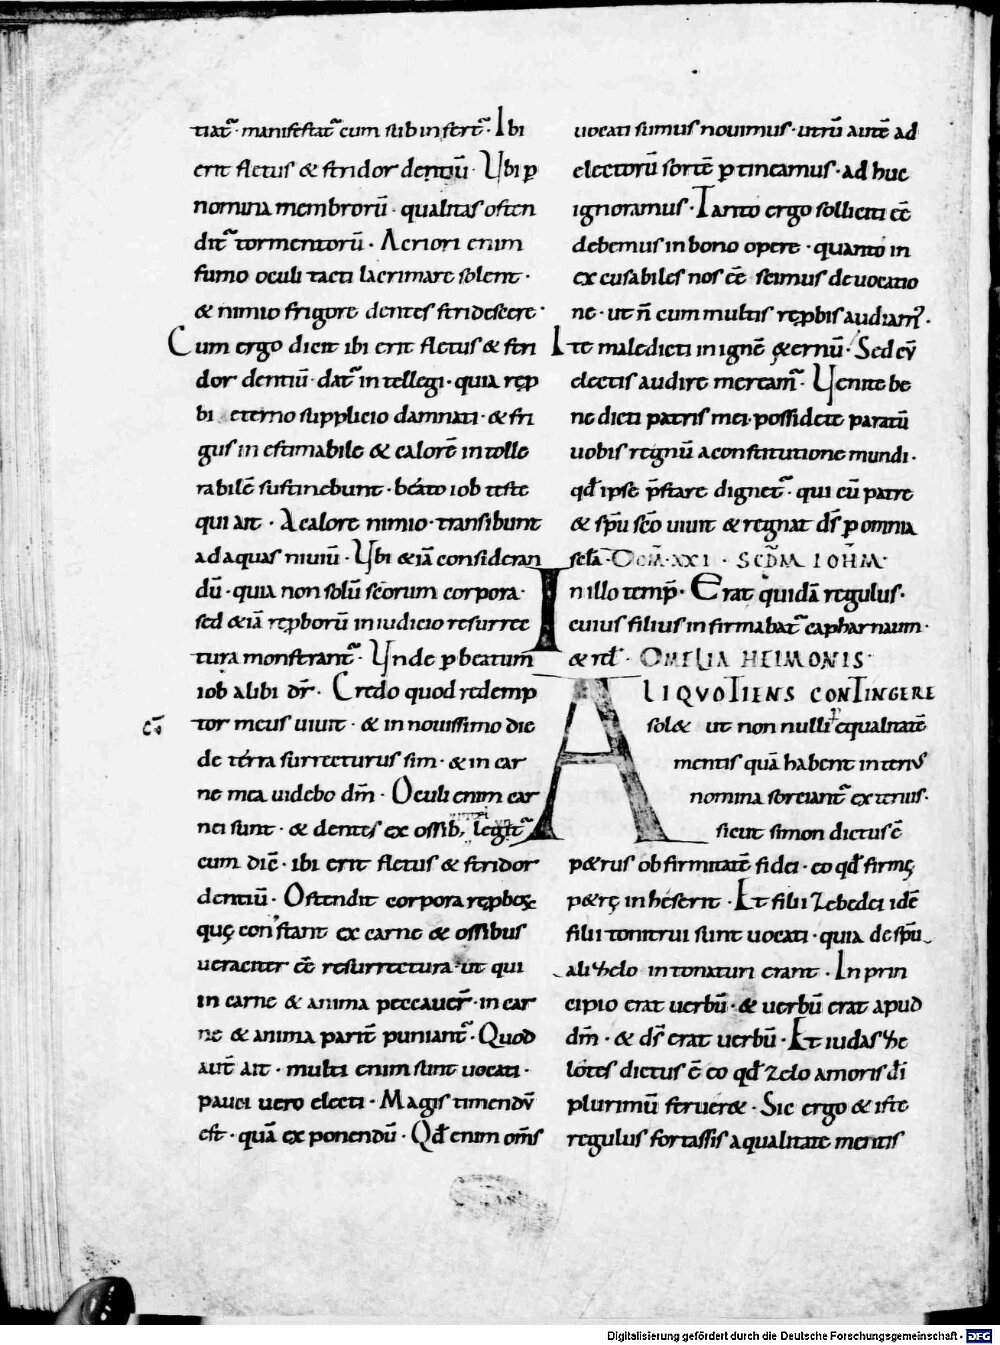 tiat᷑· manifestat᷑ cum subinfert᷑· Ibi
erit fletus & stridor dentiū· Ubi ꝑ
nomina membrorū· qualitas osten
dit᷑ tormentorū· Acriori enim
fumo oculi tacti lacrimare solent·
& nimio frigore dentes stridescere·
Cum ergo dicit ibi erit fletus & stri
dor dentiū· dat᷑ intellegi· quia reꝓ
bi ęterno supplicio damnati· & fri
gus inestimabile & calorē intolle
rabilē sustinebunt· beato iob teste
qui ait· A calore nimio· transibunt
ad aquas niuiū· Ubi & iā consideran
dū· quia non solū sc̄orum corpora·
sed & iā reꝓborū in iudicio resurrec
tura monstrant᷑· Unde ꝑ beatum
iob alibi dr̄· Credo quod redemp
cū
tor meus uiuit· & in nouissimo die
de terra surrecturus sim· & in car
ne mea uidebo dm̄· Oculi enim car
nei sunt· & dentes ex ossib; legit᷑
cum dic̄· ibi erit fletus & stridor
dentiū· Ostendit corpora reꝓboꝝ
quę constant ex carne & ossibus
ueraciter ēē resurrectura· ut qui
in carne & anima peccauer̄· in car
ne & anima parit̄ puniant᷑· Quod
aut̄ ait· multi enim sunt uocati·
pauci uero electi· Magis timendū
est· quā exponendū· Qd̄ enim om̄s
uocati sumus nouimus· utrū autē ad
electorū sortē ꝑtineamus· adhuc
ignoramus· Tanto ergo solliciti ēē
debemus in bono opere· quanto in
excusabiles nos ēē scimus de uocatio
ne· ut n̄ cum multis reꝓbis audiam᷒·
Ite maledicti in ignē &ernū· Sed cū
electis audire meream᷑· Uenite be
nedicti patris mei· possidete paratū
uobis regnū a constitutione mundi·
qd̄ ipse p̄stare dignet᷑· qui cū patre
& sp̄u sc̄o uiuit & regnat ds̄ ꝑ omnia
sc̄la· Dom̄· XXI· SCD̄M IOHM̄·
In illo temp̄· Erat quidā regulus·
cuius filius infirmabat᷑ capharnaum·
& rel̄· OMELIA HEIMONIS·
ALIQVOTIENS CONTINGERE
sol& ut non nulli ęqualitatē
mentis quā habent interi⁹
nomina sorciant᷑ exterius·
sicut simon dictus ē
p&rus ob firmitatē fidei· eo qd̄ firmę
p&rę inheserit· Et filii zebedei idē
filii tonitrui sunt uocati· quia de sp̄u
ali zelo intonaturi erant· In prin
cipio erat uerbū· & uerbū erat apud
dm̄· & ds̄ erat uerbū· Et iudas ze
lotes dictus ē eo qd̄ zelo amoris dī
plurimū feruer&· Sic ergo & iste
regulus fortassis a qualitate mentis
Digitalisierung gefördert durch die Deutsche Forschungsgemeinschaft - DFG